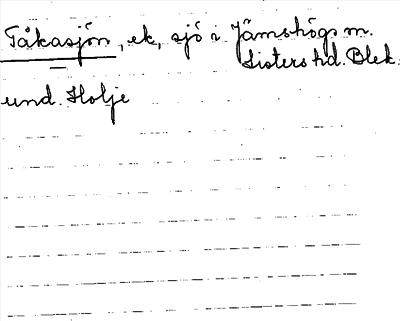 Tåkasjön, ek, sjö i Jämshögs m.
Listers hd. Blek.
und. Holje